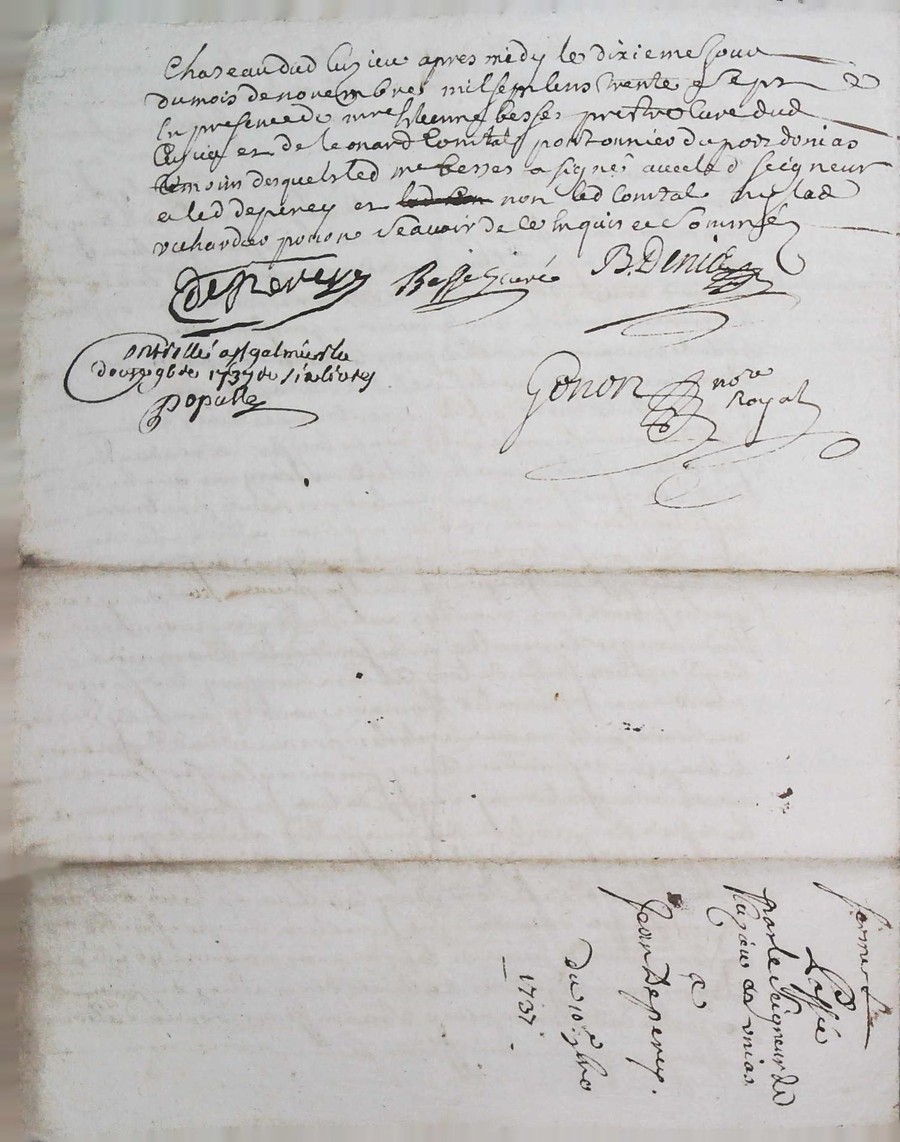 Chateau dud Cuzieu apres midy le dixieme Jour
du mois de novembre mil sept cens trente e sept &
En presence de mre Estienne besses prestre Cure dud
Cuzieu et de leonard Comtal pontonnier du port donias
témoins desquels led mre besses a signé avec led seigneur
et led deperey et non led Comtal ny lad
richarde pour ne scavoir de ce Enquis et sommé
deperery Besse Curé B. Denis
Controllé a st galmier le
douze 9bre 1737 six livres
populle
Gonon nore
Royal
ferme
Passée
par le Seigneur de
Cuzieu et unias
a
Jean Deperey.
du 10e 9bre
1737.